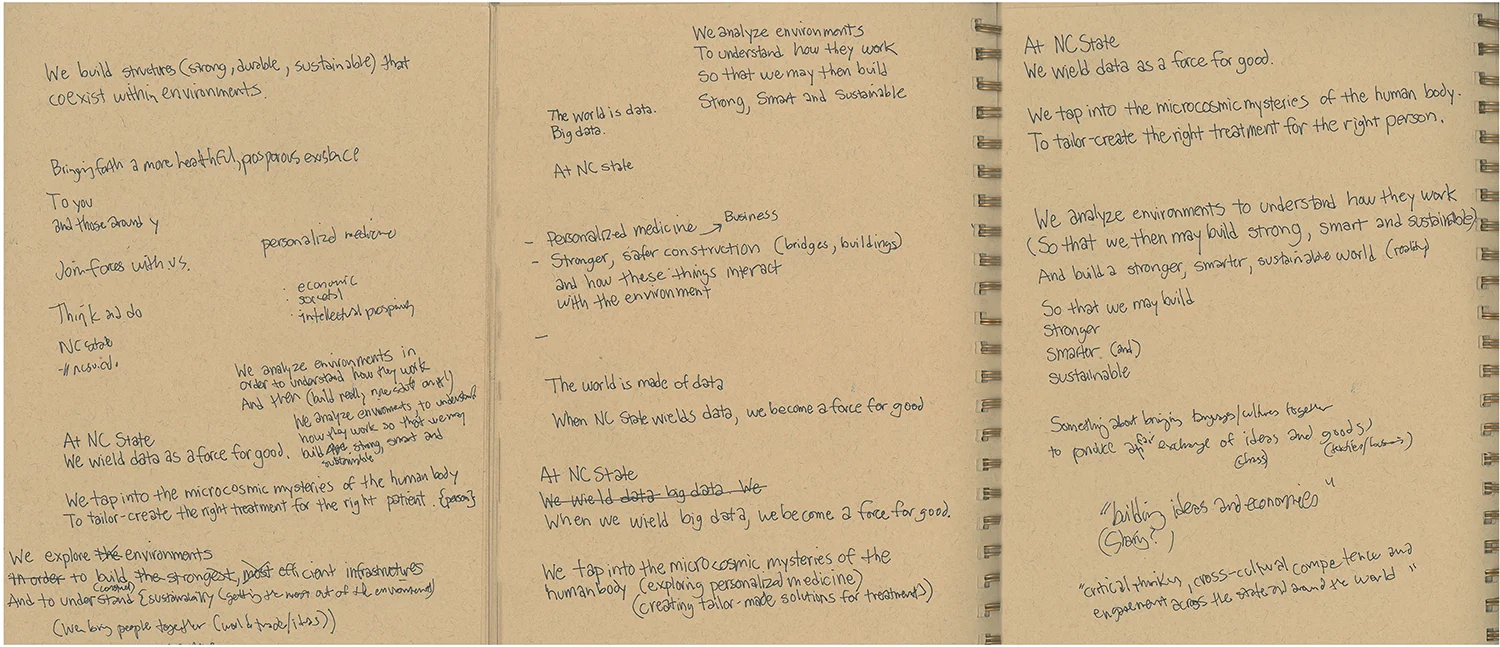 We build structures (strong, durable, sustainable) that
coexist within environments.
Bringing forth a more healthful, prosporous existace
To you
and those around y
personalized medicine
Join forces with us.
· economic
· societal
· intellectual prosperity
Think and do
NC State
We analyze environments in
order to understand how they work
And then (build really
We analyze enviroments, to understand
how they work so that we may
build strong, smart and
sustainable
At NC State
We wield data as a force for good.
We tap into the microcosmic mysteries of the human body
To tailor-create the right treatment for the right patient. {person}
We explore the environments
In order to build the strongest, most efficient infrastructures
(construct)
And to understand {sustainability (getting the most out of the environment)
(We bring people together (world trade/ideas))
We analyze environments
To understand how they work
So that we may then build
Strong, Smart and Sustainable
The world is data.
Big data.
At NC State
- Personalized medicine → Business
- Stronger, safer construction (bridges, buildings)
and how these things interact
with the environment
-
The world is made of data
When NC State wields data, we become a force for good
At NC State
We wield data big data We
When we wield big data, we become a force for good.
We tap into the microcosmic mysteries of the
human body (exploring personalized medicine)
(creating tailor-made solutions for treatments)
At NC State
We wield data as a force for good.
We tap into the microcosmic mysteries of the human body.
To tailor-create the right treatment for the right person.
We analyze environments to understand how they work
(So that we then may build strong, smart and sustainable)
And build a stronger, smarter, sustainable world (reality)
So that we may build
stronger
smarter (and)
sustainable
Something about bringing languages/cultures together
to produce a fair exchange of ideas and goods)
"building ideas and economies"
(Sharing?)
"critical thinking, cross-cultural competence and
engagement across the state and around the world"